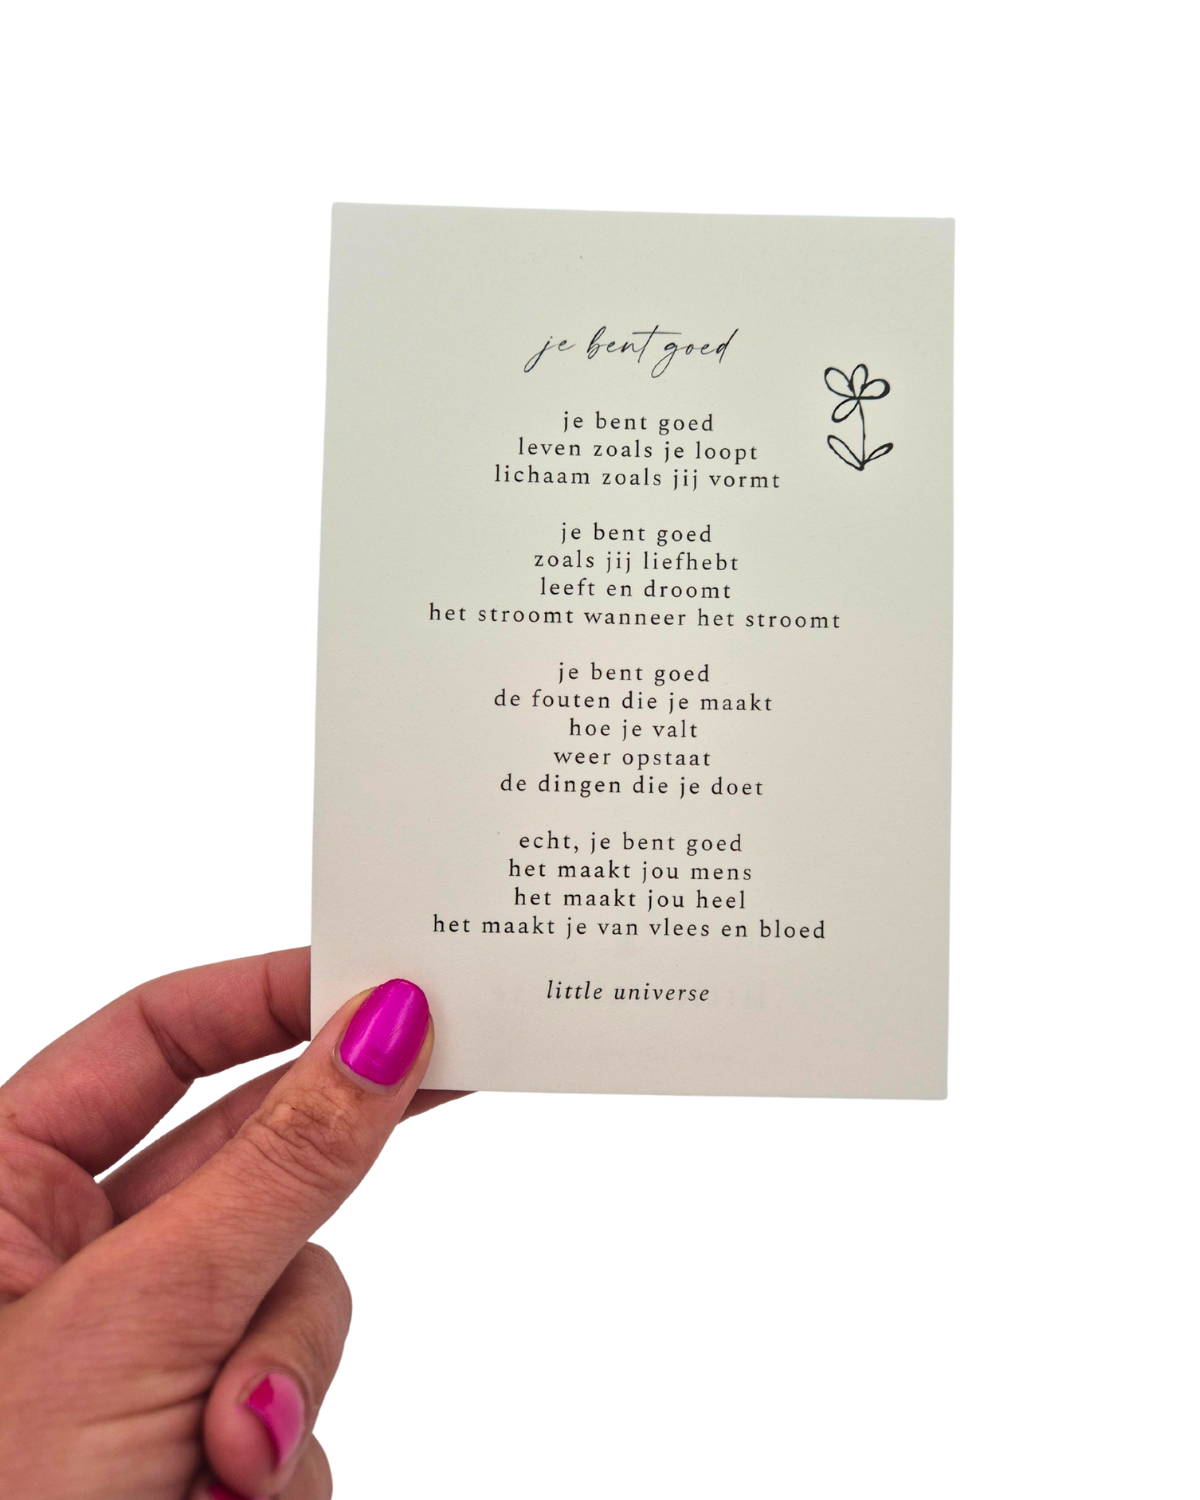 je bent goed
je bent goed
leven zoals je loopt
lichaam zoals jij vormt
je bent goed
zoals jij liefhebt
leeft en droomt
het stroomt wanneer het stroomt
je bent goed
de fouten die je maakt
hoe je valt
weer opstaat
de dingen die je doet
echt, je bent goed
het maakt jou mens
het maakt jou heel
het maakt je van vlees en bloed
little universe